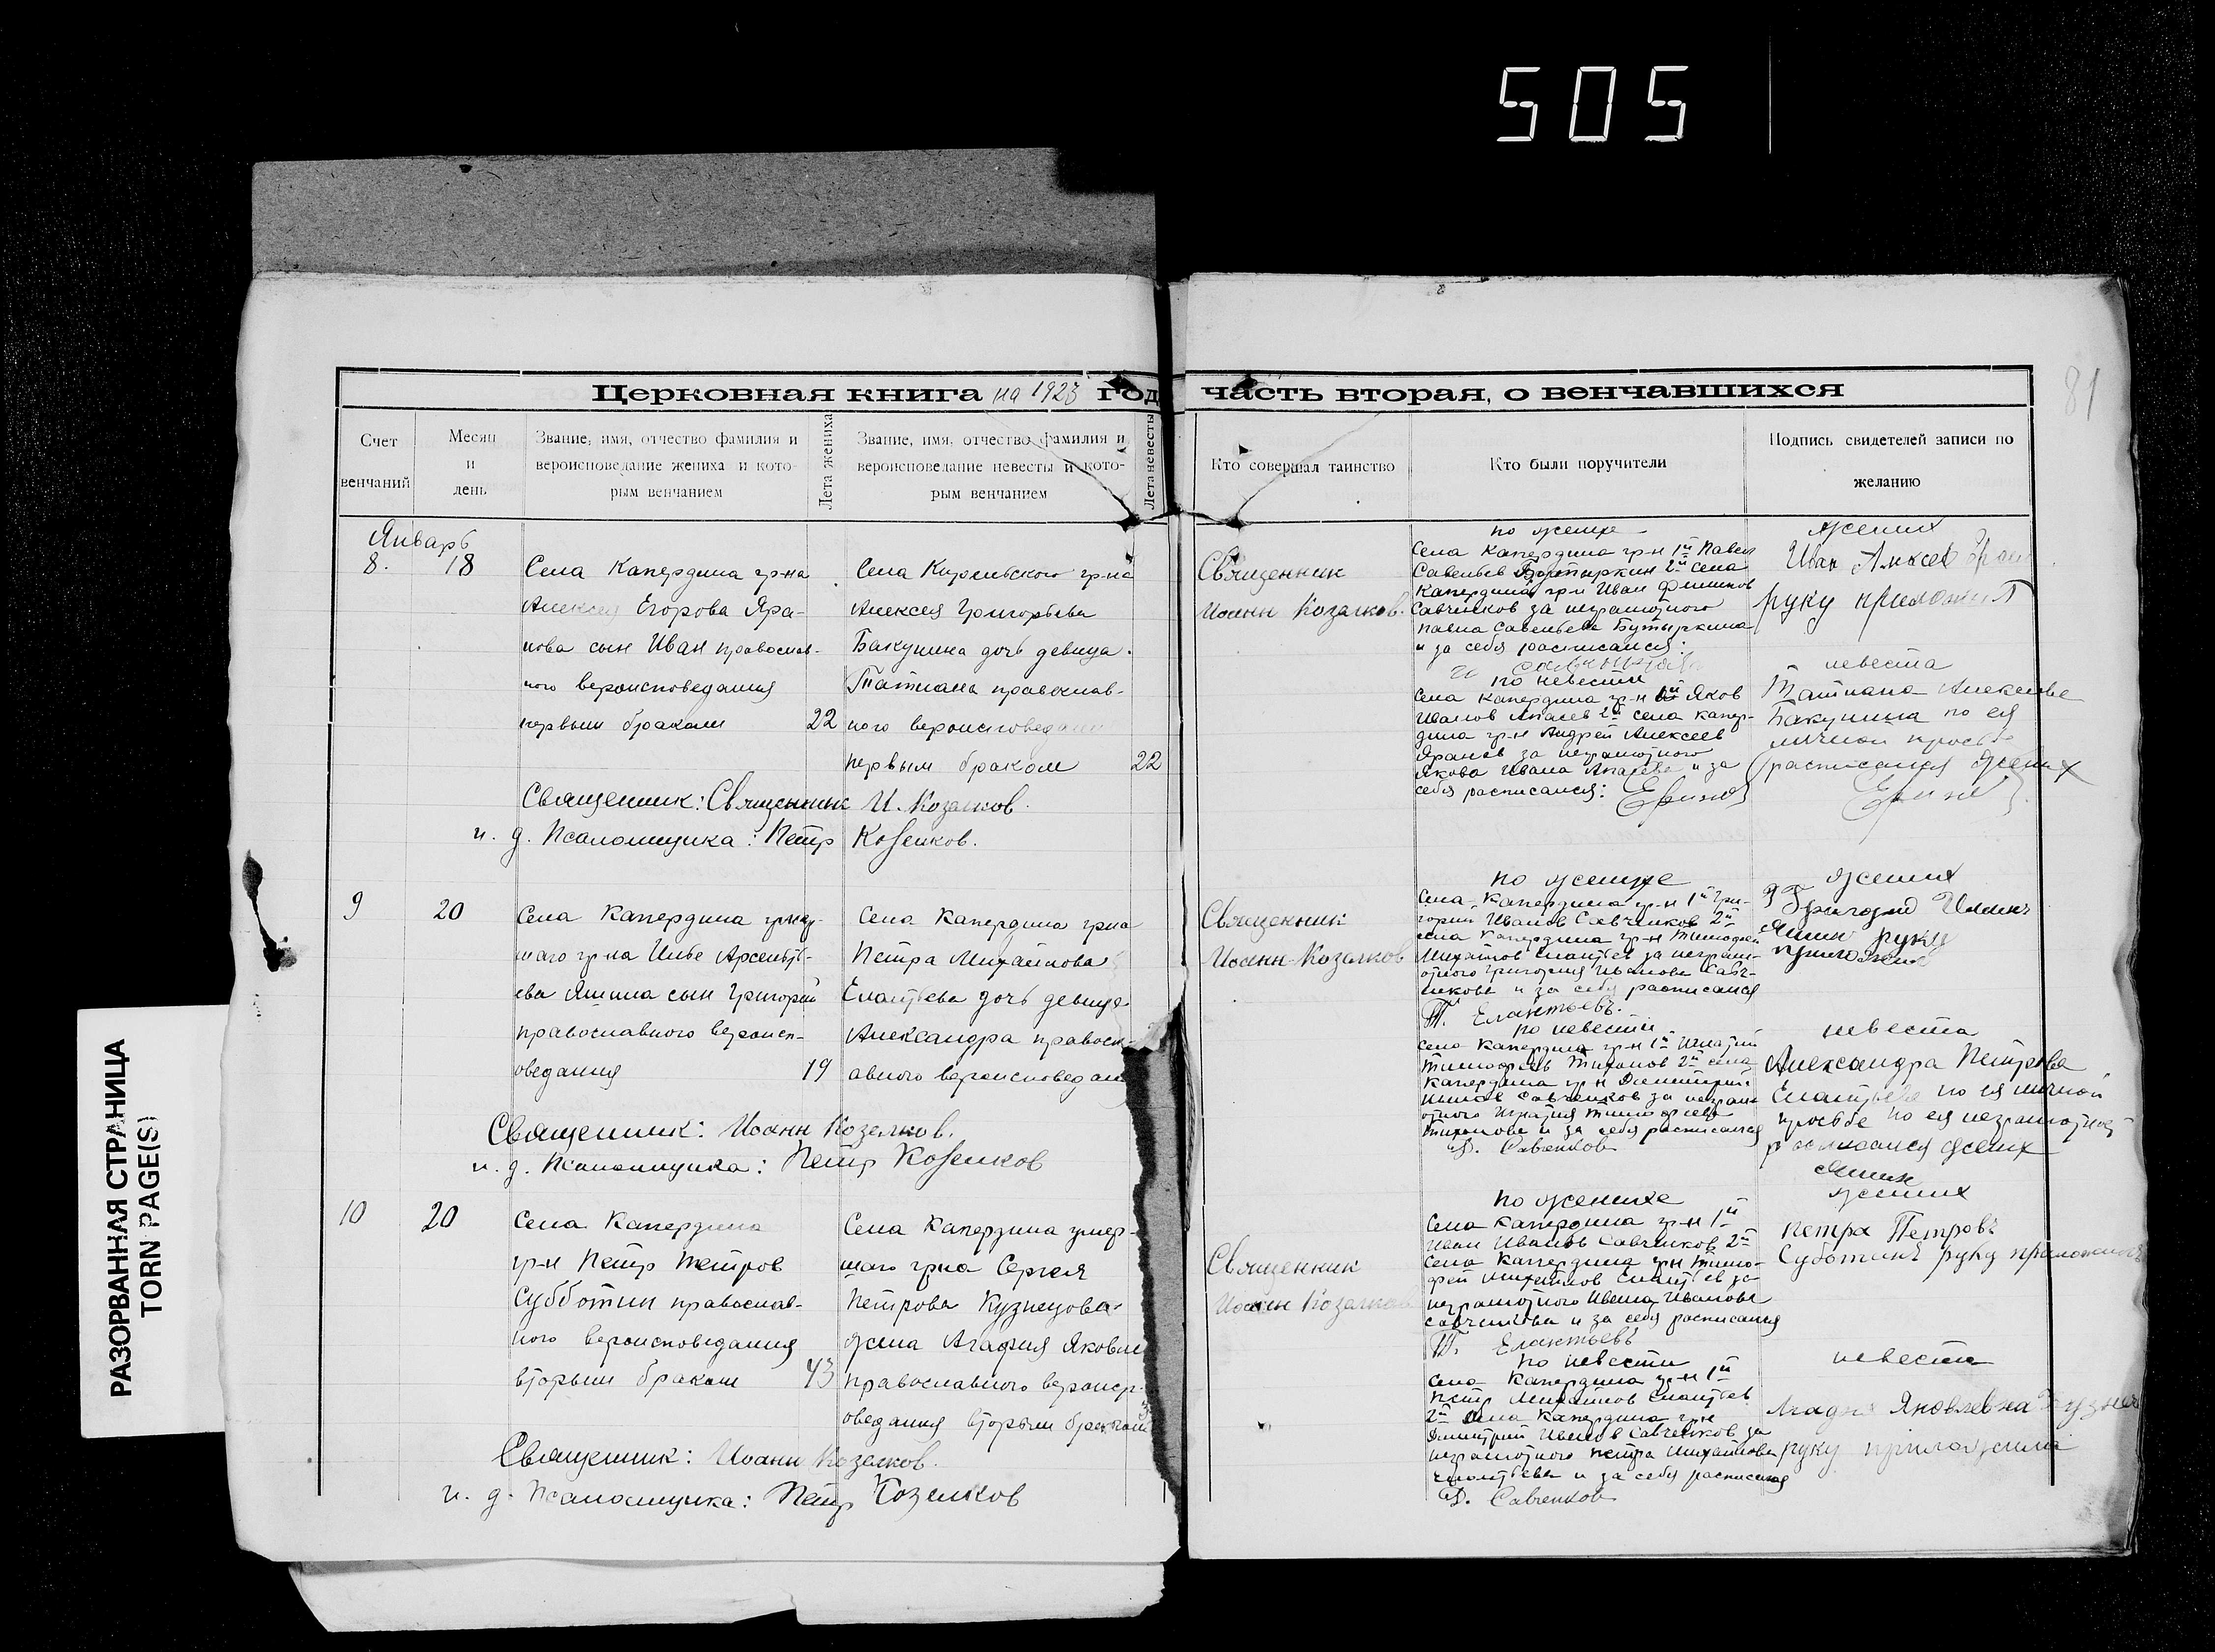 505
РАЗОРВАННАЯ СТРАНИЦА
TORN PAGE(S)
81
Церковная книга на 1923 год
часть вторая, о венчавшихся
Счет венчаний
Месяц и день
Звание, имя, отчество фамилия и вероисповедание жениха и которым венчанием
Лета жениха
Звание, имя, отчество фамилия и вероисповедание невесты и кото-
рым венчанием
Лета невесты
Кто совершал таинство
Кто были поручители
Подпись свидетелей записи по
желанию
Январь
8. 18
Села Капердина гр-на
Алексея Егорова Яра-
нова сын Иван православ-
ного вероисповедания
первым браком 22
Села Кирсибского гр-на
Алексея Григорьева
Бакунина дочь девица
Татиана православ-
ного вероисповедания
первым браком 22
Священник: Священник И. Козелков.
и. д. Псаломщика: Петр Козелков.
Священник
Иоанн Козелков.
по женихе
Села Капердина гр-н 1й Павел
Савельев 2й села
Капердина гр-н Иван Филипов
Савченков за неграмотного
Павла Савельева Бутыркина
и за себя расписался:
по невесте
Села Капердина гр-н 1й Яков
Иванов 2й села Капер-
дина гр-н Андрей Алексеев
за неграмотного
Якова Ивана и за
себя расписался:
жених
Иван Алексев
руку приложил
невеста
Татиана Алексеева
Бакунина по ея
личной просьбе
расписался жених
9 20
Села Капердина умер-
шаго гр-на Илье Арсентье-
ева Яшина сын Григорий
православного вероисп-
оведания 19
Села Капердина гр-на
Петра Михайлова
Елантьева дочь девица
Александра правосл-
авного вероисповедан
Священник: Иоанн Козелков.
и. д. Псаломщика: Петр Козелков
Священник
Иоанн Козелков
по женихе
Села Капердина гр-н 1й Гри-
горий Иванов Савченков 2й
села Капердина гр-н Тимофей
Михайлов Елантьев за неграм-
отного Григория Иванова Савч-
енкова и за себя расписался
Т. Елантьевъ.
по невесте
Села Капердина гр-н 1й Игнатий
Тимофеев Тихонов 2й села
Капердина гр-н Димитрий
Иванов Савченков за неграм
отного Игнатия Тимофеева
Тихонова и за себя расписался
Д. Савченков
жених
Григорий Ильин
Яшин руку
приложил
невеста
Александра Петрова
Елантьева по ея личной
просьбе по ея неграмотност
расписался жених
Яшин
10 20
Села Капердина
гр-н Петр Петров
Субботин православ-
ного вероисповедания
вторым браком 43
Села Капердина умер-
шаго гр-на Сергея
Петрова Кузнецова
жена Агафия Яковле
православного вероисп-
оведания вторым браком
Священник: Иоанн Козелков.
и. д. Псаломщика: Петр Козелков
Священник
Иоанн Козелков
по женихе
Села Капердина гр-н 1й
Иван Иванов Савченков 2й
Села Капердина гр-н Тимо-
фей Михайлов Елантьев за
неграмотного Ивана Иванова
Савченкова и за себя расписался
Т. Елантьевъ
по невесте
Села Капердина гр-н 1й
Петр Михайлов Елантьев
2й Села Капердина гр-н
Димитрий Иванов Савченков за
неграмотного Петра Михайлова
Елантьева и за себя расписался
Д. Савченков
жених
Петра Петровъ
Суботинъ руку приложилъ
невеста
Агафия Яковлевна Кузнец
руку приложила